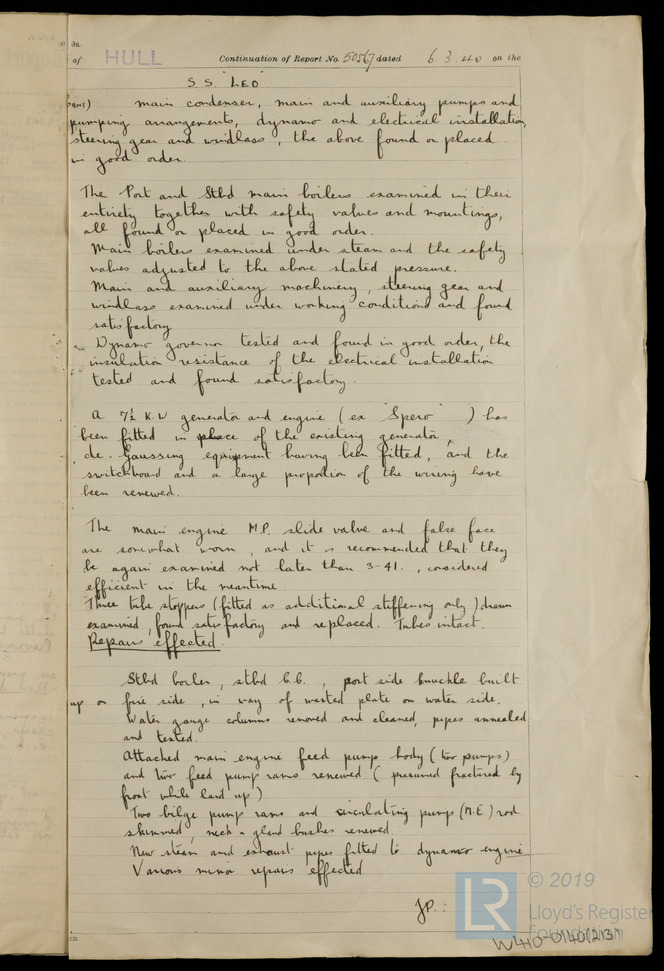 9a.
of HULL Continuation of Report No. 50567 dated 6.3.40 on the
S.S. "LEO"
main condenser, main and auxiliary pumps and
pumping arrangements, dynamo and electrical installation,
steering gear and windlass, the above found or placed
in good order.
The Port and Stbd main boilers examined in their
entirety together with safety valves and mountings,
all found or placed in good order.
Main boilers examined under steam and the safety
valves adjusted to the above stated pressure.
Main and auxiliary machinery, steering gear and
windlass examined under working conditions and found
satisfactory.
Dynamo governor tested and found in good order, the
insulation resistance of the electrical installation
tested and found satisfactory.
A 7½ K.W generator and engine (ex "Spero" ) has
been fitted in place of the existing generator,
de-Gaussing equipment having been fitted, and the
switchboard and a large proportion of the wiring have
been renewed.
The main engine M.P. slide valve and false face
are somewhat worn, and it is recommended that they
be again examined not later than 3-41., considered
efficient in the meantime.
Three tube stoppers (fitted as additional stiffening only) drawn
examined, found satisfactory and replaced. Tubes intact.
Repairs effected.
Stbd boiler, stbd C.C., port side knuckle built
up on fire side, in way of wasted plate on water side.
Water gauge columns removed and cleaned, pipes annealed
and tested.
Attached main engine feed pump body (two pumps)
and two feed pump rams renewed (presumed fractured by
frost while laid up)
Two bilge pump rams and circulating pump (M.E) rod
skimmed, neck & gland bushes renewed.
New steam and exhaust pipes fitted to dynamo engine
Various minor repairs effected
JP.:
LR © 2019
Lloyd's Register
Foundation
W410-0140(2/3)